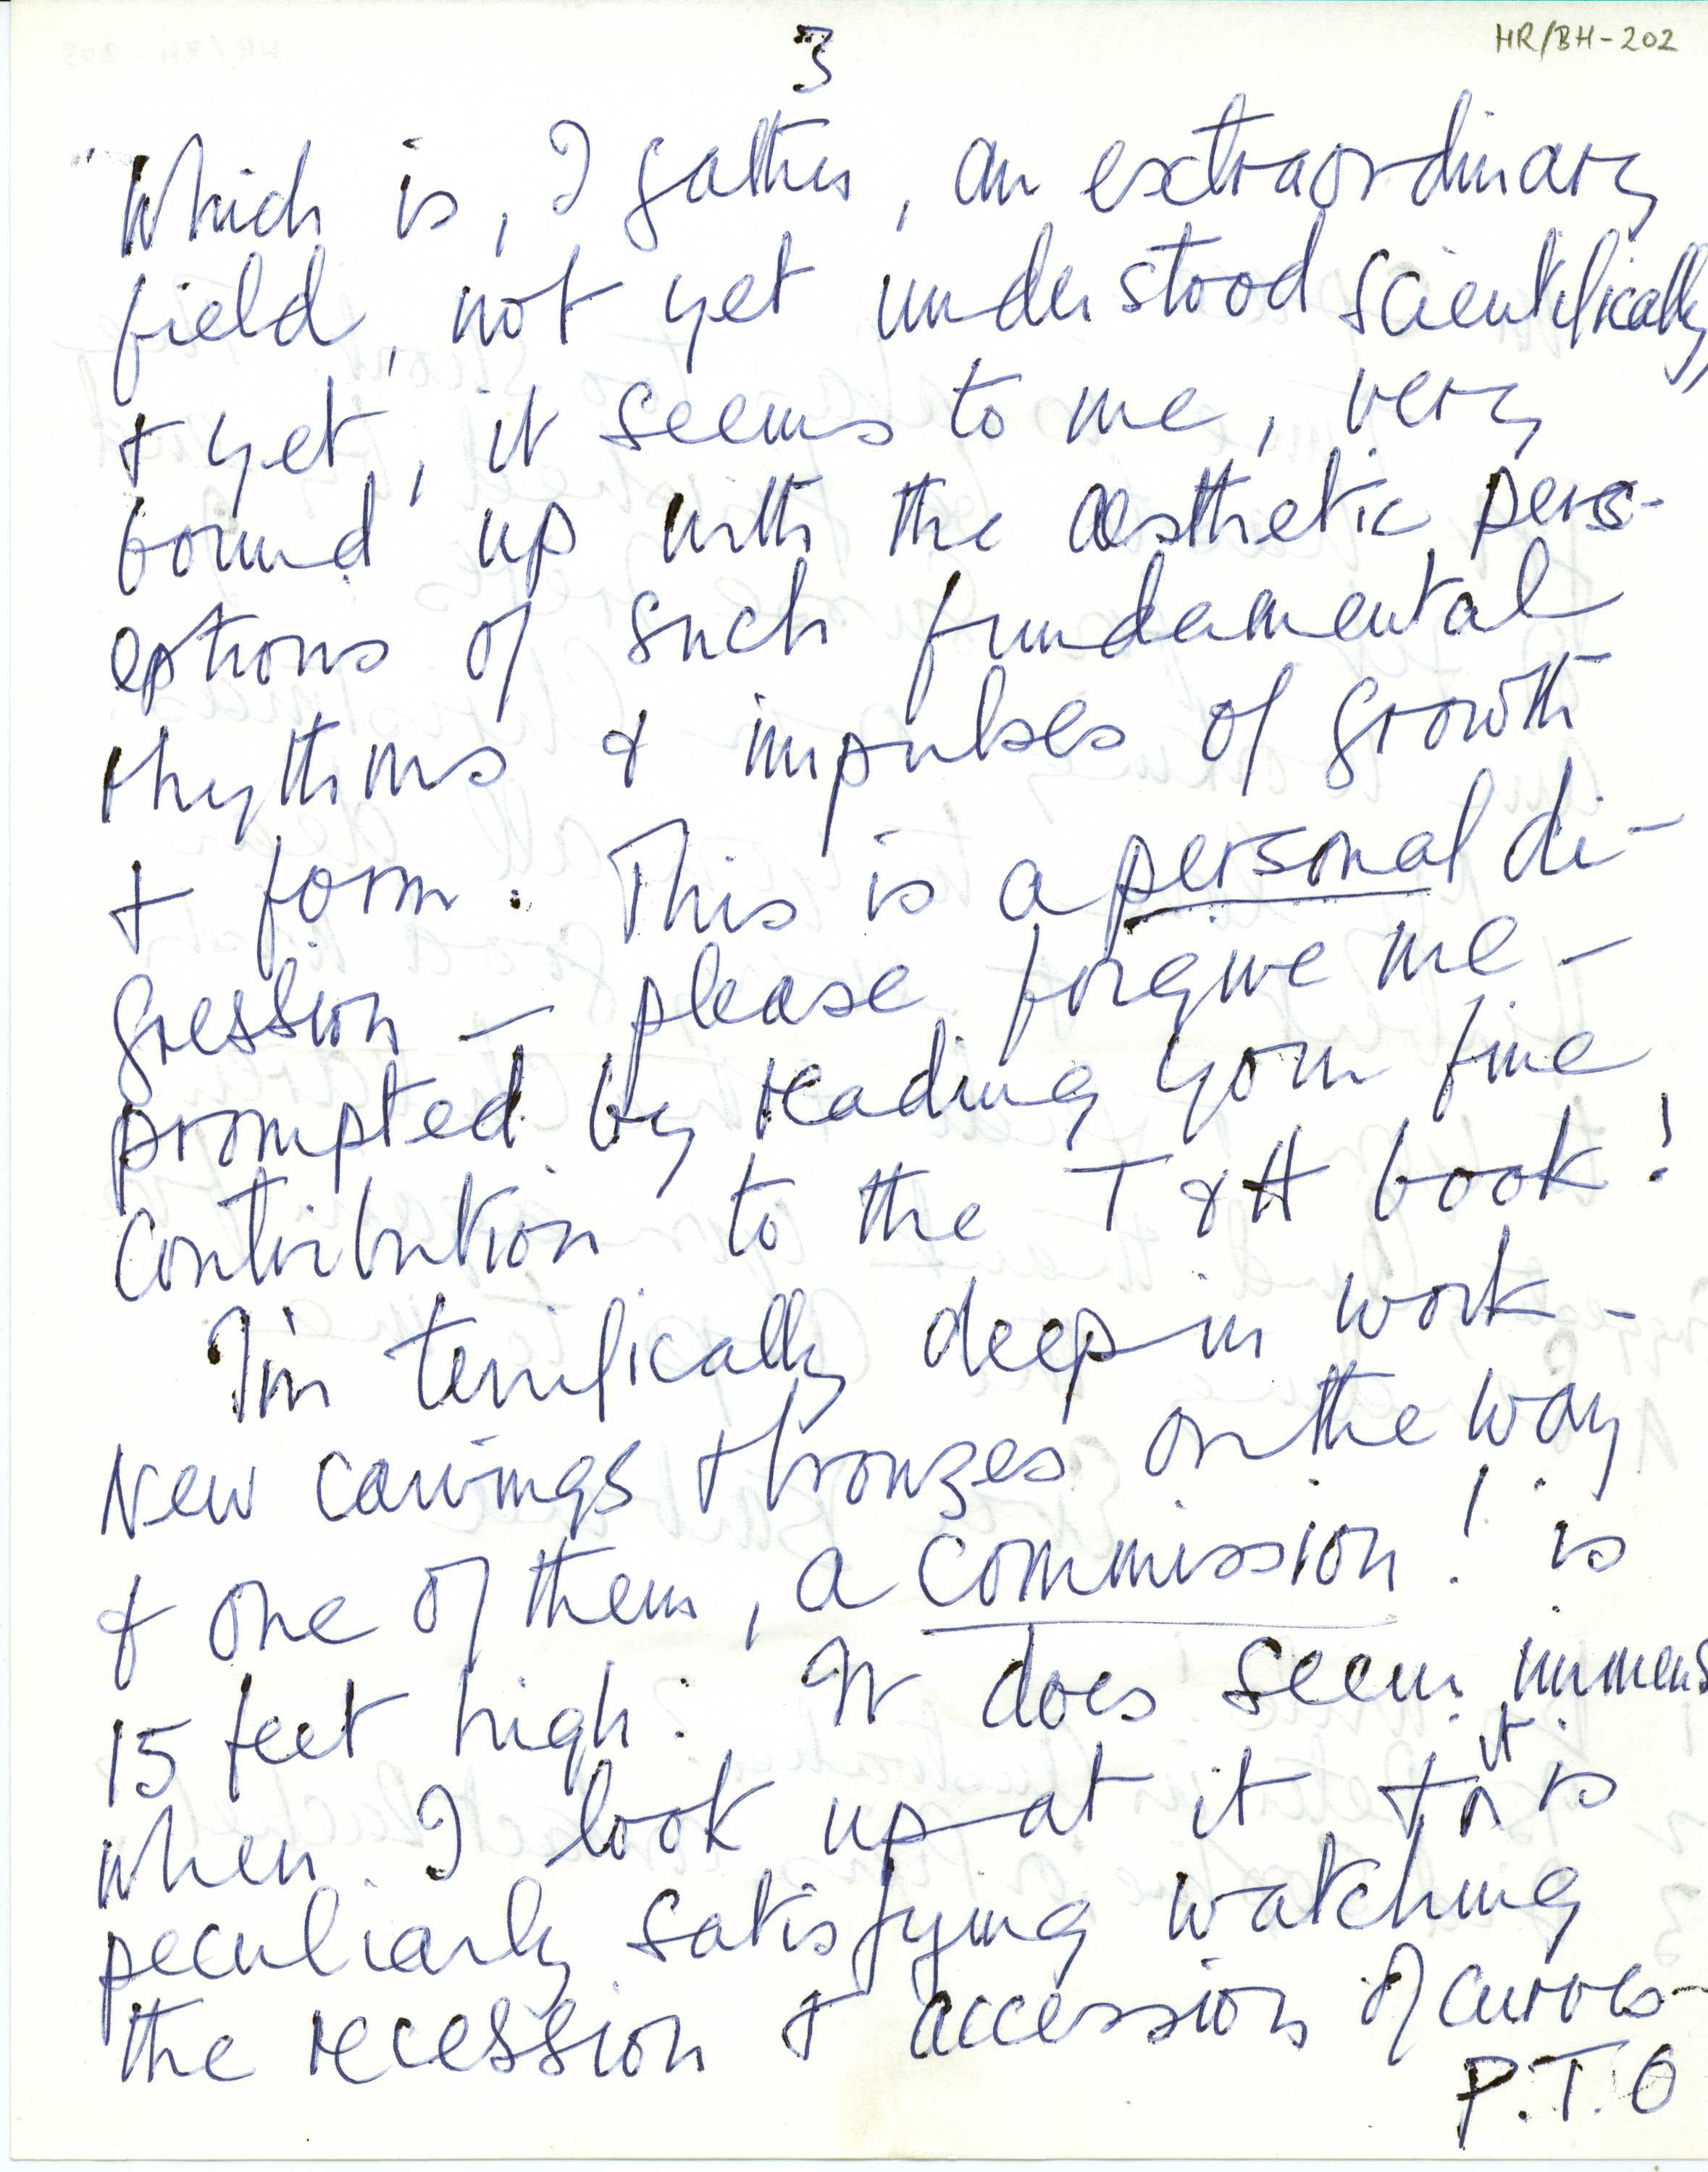 3
HR/BH-202
"Which is, I gather, an extraordinary
field, not yet understood scientifically,
& yet, it seems to me, very
bound up with the aesthetic perc-
eptions of such fundamental
rhythms & impulses of growth
& form. This is a personal di-
gression — please forgive me —
prompted by reading your fine
contribution to the T & H book!
I'm terrifically deep in work -
New carvings & bronzes on the way
& one of them, a commission! is
15 feet high: It does seem immens
when I look up at it & it is
peculiarly satisfying watching
the recession & accession of curves -
P.T.O